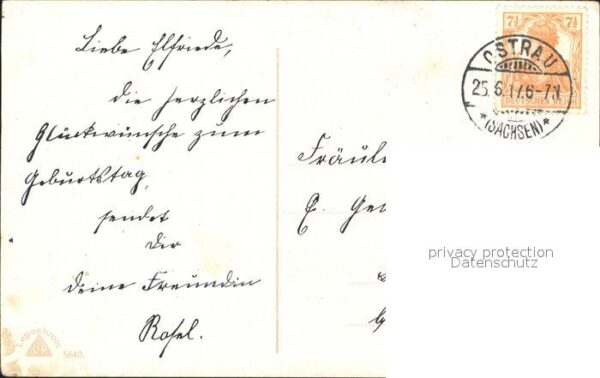 Liebe Elfriede,
die herzlichen
Glückwünsche zum
Geburtstag,
sendet
Dir
deine Freundin
Rosel.
Lepochrom
5640.
7½ 7½
OSTRAU
25.6.17.6-7N
*(SACHSEN)*
Fräule
E. Ge
privacy protection
Datenschutz